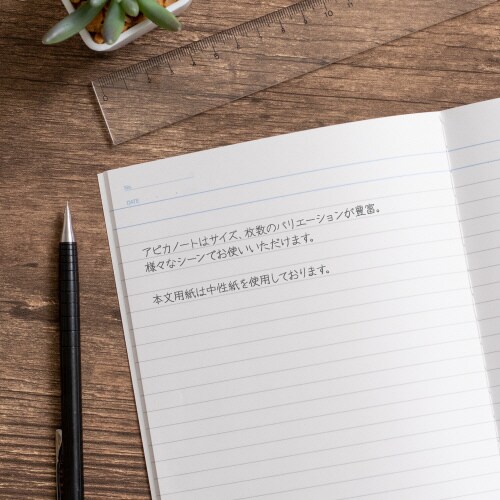 No.
DATE
アピカノートはサイズ、枚数のバリエーションが豊富。
様々なシーンでお使いいただけます。
本文用紙は中性紙を使用しております。